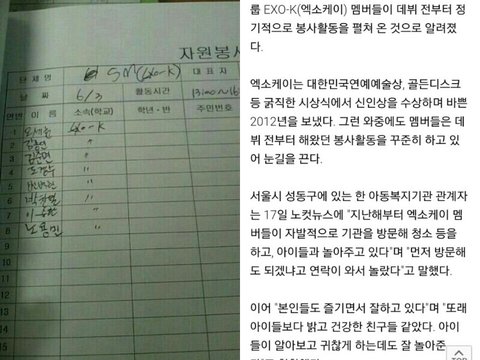 자원봉사
단체명 SM(EXO-K) 대표자
날짜 활동시간 13:00~16
연번 이름 소속(학교) 학년·반 주민번호
1 오세훈 EXO-K
2 김종인 "
3 김준면 "
4 도경수 "
5 변백현 "
6 박찬열 "
7 "
8 노용민 "
룹 EXO-K(엑소케이) 멤버들이 데뷔 전부터 정
기적으로 봉사활동을 펼쳐 온 것으로 알려졌
다.
엑소케이는 대한민국연예예술상, 골든디스크
등 굵직한 시상식에서 신인상을 수상하며 바쁜
2012년을 보냈다. 그런 와중에도 멤버들은 데
뷔 전부터 해왔던 봉사활동을 꾸준히 하고 있
어 눈길을 끈다.
서울시 성동구에 있는 한 아동복지기관 관계자
는 17일 노컷뉴스에 "지난해부터 엑소케이 멤
버들이 자발적으로 기관을 방문해 청소 등을
하고, 아이들과 놀아주고 있다"며 "먼저 방문해
도 되겠냐고 연락이 와서 놀랐다"고 말했다.
이어 "본인들도 즐기면서 잘하고 있다"며 "또래
아이들보다 밝고 건강한 친구들 같았다. 아이
들이 알아보고 귀찮게 하는데도 잘 놀아준
TOP